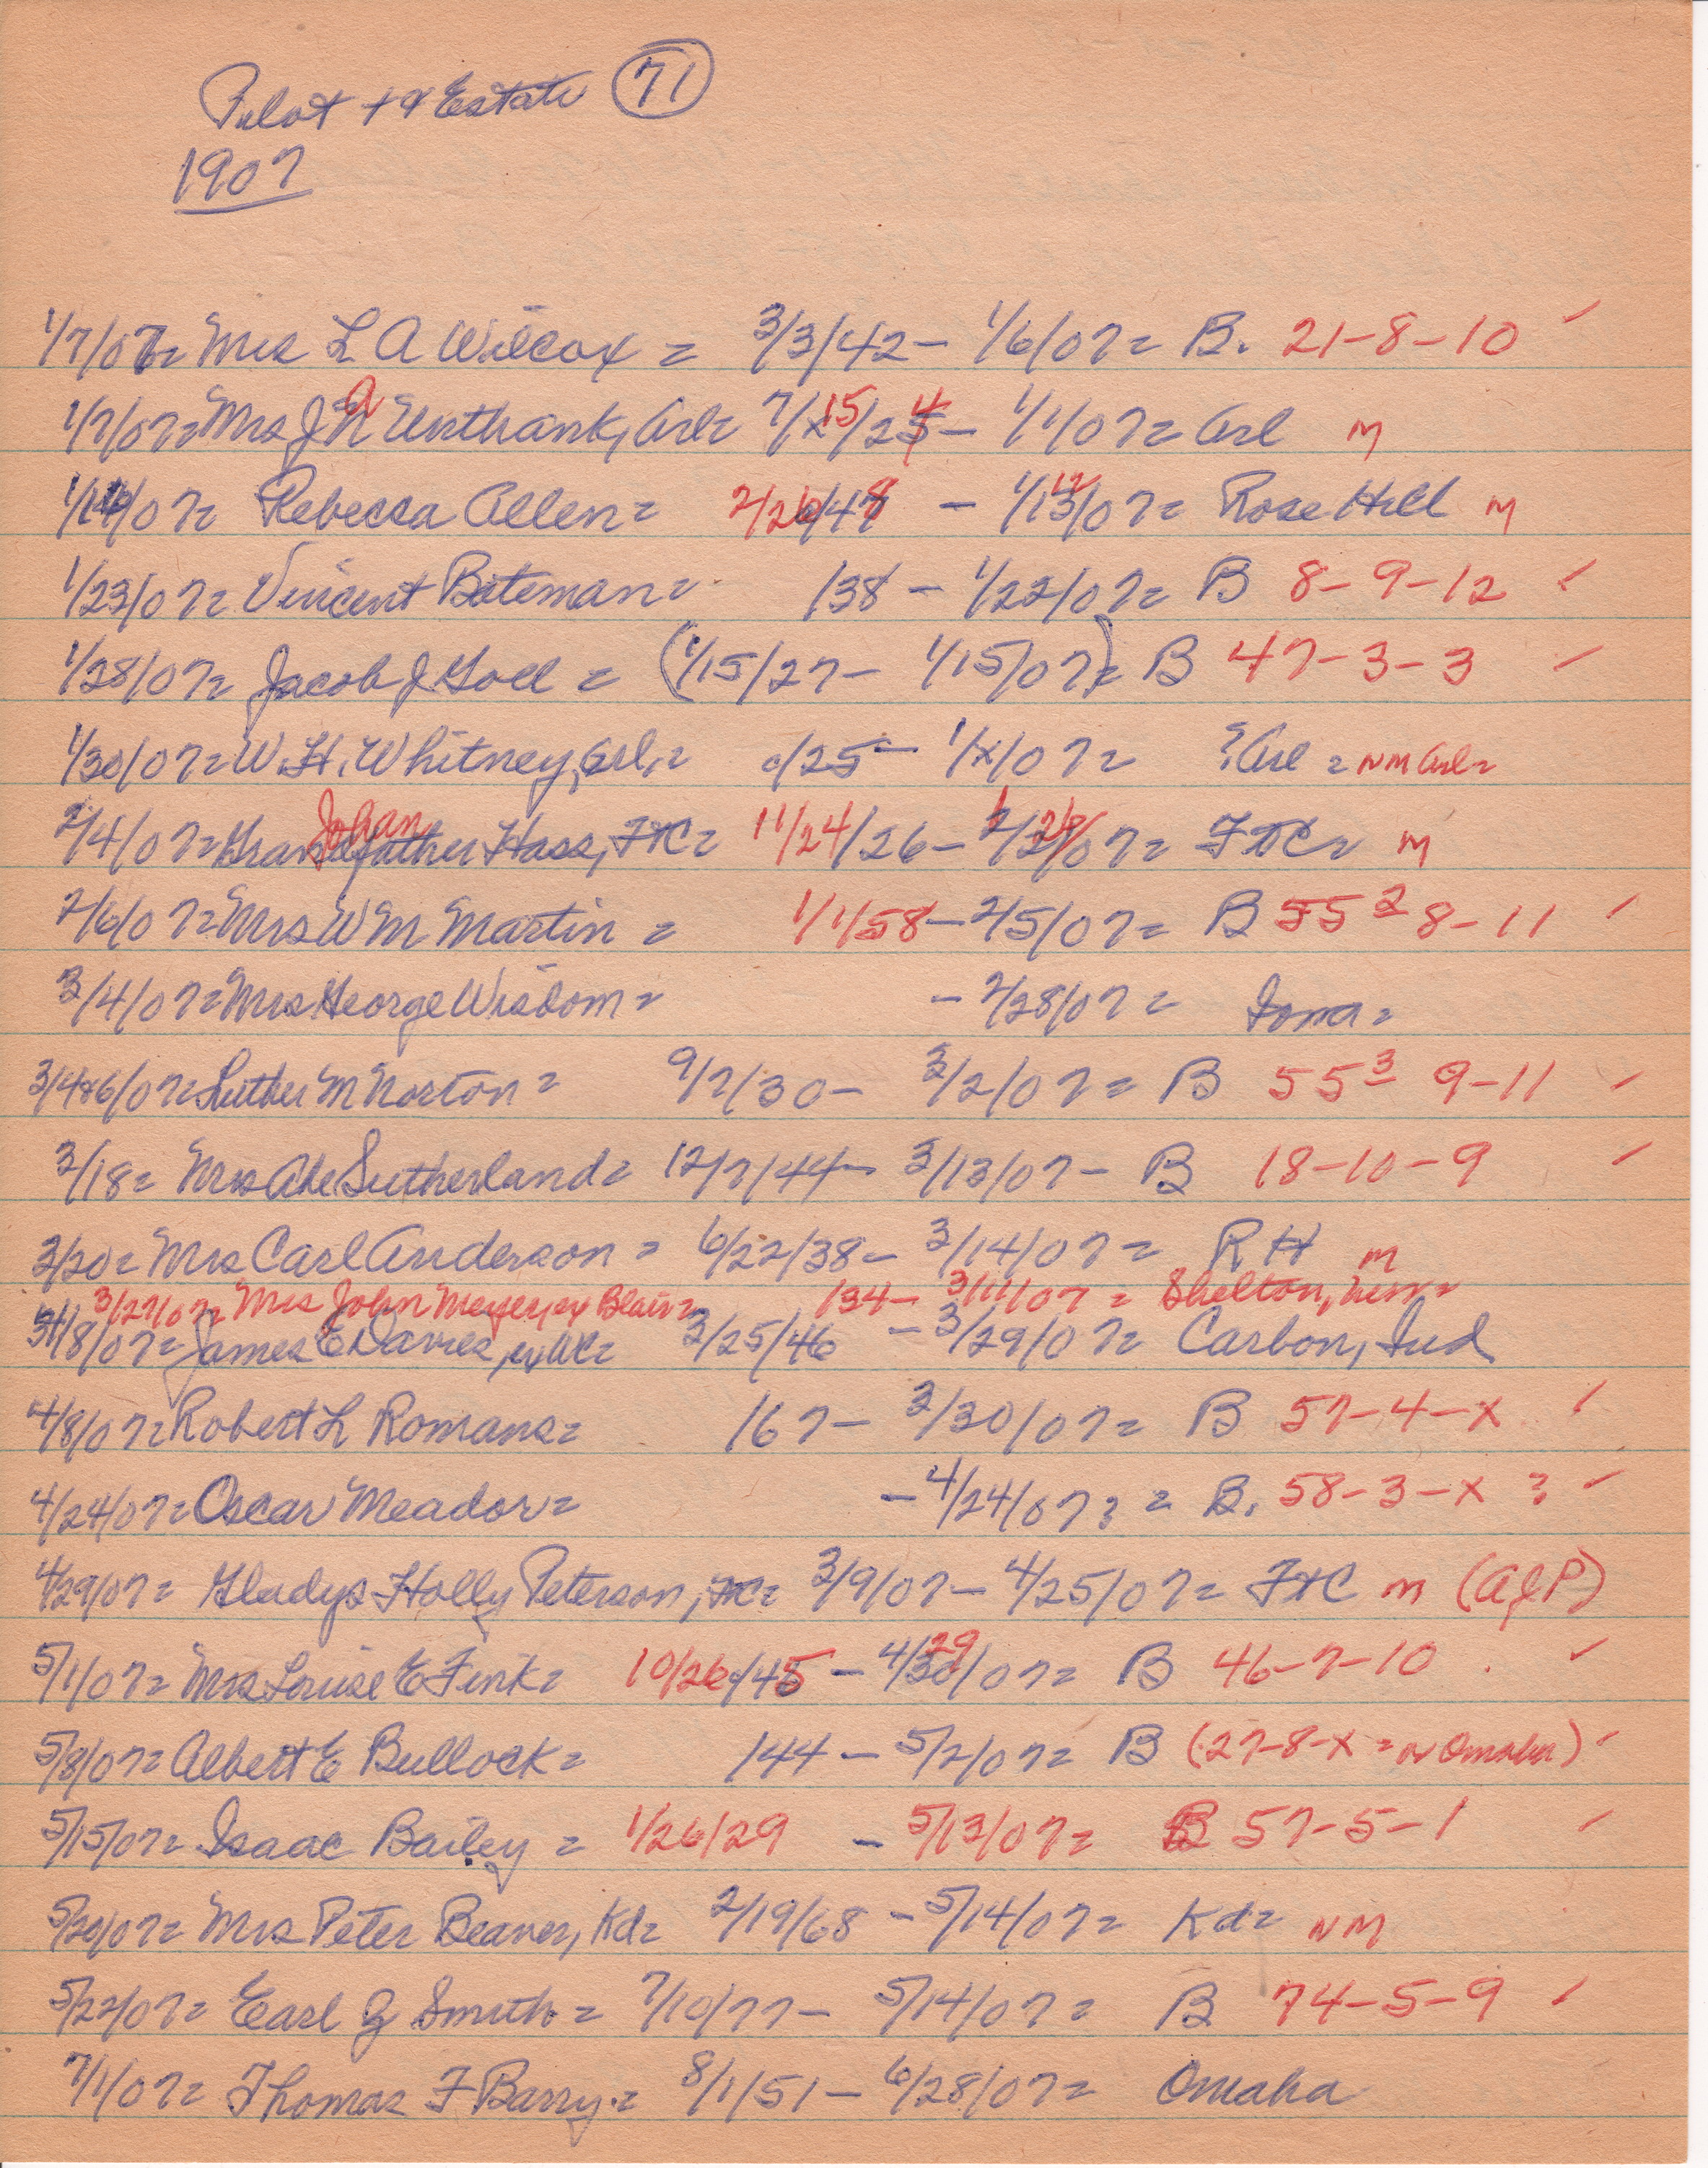 Pilot + & Estate 71
1907
1/7/07= Mrs L A Wilcox = 3/3/42 - 1/6/07= B. 21-8-10 ✓
1/7/07= Mrs J A Unthank, Arl= 7/15/24 - 1/1/07= Arl m
1/14/07= Rebecca Allen= 2/26/48 - 1/12/07= Rose Hill m
1/23/07= Vincent Bateman= /38 - 1/22/07= B 8-9-12 ✓
1/28/07= Jacob J Goll = (1/15/27- 1/15/07)= B 47-3-3 ✓
1/30/07= W.H. Whitney, Arl,= c/25- 1/x/07= ? Arl = NM Arl=
2/4/07= Grandfather Johan Hass, FtC= 11/24/26- 1/28/07= FtC= m
2/6/07= Mrs WM Martin = 1/1/58-2/5/07= B 55 2 8-11 ✓
3/4/07= Mrs George Wisdom= - 2/28/07= Iowa=
3/4&6/07= Luther M Norton= 9/7/30- 3/2/07= B 55 3 9-11 ✓
3/18= Mrs Abe Sutherland= 12/7/44- 3/13/07- B 18-10-9 ✓
3/20= Mrs Carl Anderson= 6/22/38- 3/14/07= RH m
3/27/07= Mrs John Meyer, ex Blair= /34- 3/11/07= Shelton, Nebr=
4/8/07= James E Davies, ex WC= 3/25/46 - 3/29/07= Carbon, Ind
4/8/07= Robert L Romans= /67- 3/30/07= B 57-4-x ✓
4/24/07= Oscar Meador= - 4/24/07? = B. 58-3-x ? ✓
4/29/07= Gladys Holly Peterson, FtC= 3/9/07- 4/25/07= FtC m (AJP)
5/1/07= Mrs Louise E Fink= 10/26/45 - 4/29/07= B 46-7-10 ✓
5/8/07= Albert E Bullock= /44 - 5/2/07= B (27-8-x = N Omaha) ✓
5/15/07= Isaac Bailey = 1/26/29 - 5/13/07= B 57-5-1 ✓
5/20/07= Mrs Peter Beaver, Kd= 2/19/68 - 5/14/07= Kd= NM
5/22/07= Earl G Smith= 7/10/77- 5/14/07= B 74-5-9 ✓
7/1/07= Thomas F Barry= 8/1/51- 6/28/07= Omaha